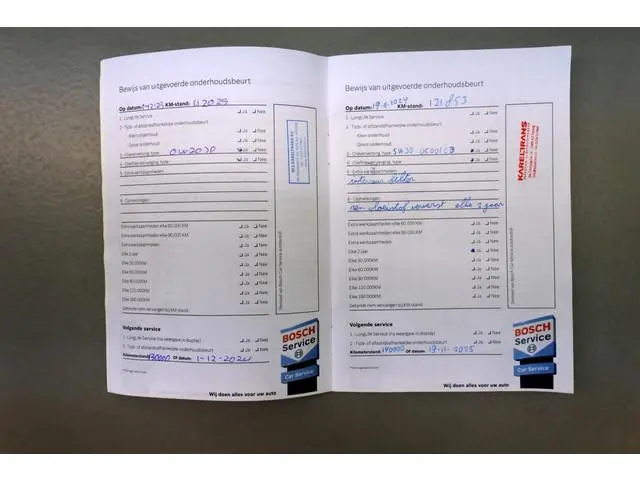 Bewijs van uitgevoerde onderhoudsbeurt
Op datum: KM-stand:
1 - LongLife Service Ja Nee
2 - Tijds- of afstandsafhankelijke onderhoudsbeurt
Klein onderhoud Ja Nee
Groot onderhoud Ja Nee
3 - Olieverversing, type: OW20 Ja Nee
4 - Ja Nee
5 - Extra werkzaamheden:
6 - Opmerkingen:
Extra werkzaamheden elke 60.000 KM Ja Nee
Extra werkzaamheden elke 90.000 KM Ja Nee
Extra werkzaamheden Ja Nee
Elke 2 jaar Ja Nee
Elke 30.000KM Ja Nee
Elke 60.000KM Ja Nee
Elke 90.000KM Ja Nee
Elke 120.000KM Ja Nee
Elke 180.000KM Ja Nee
Getande riem vervangen bij KM-stand:
Stempel van Bosch Car Service autobedrijf
Volgende service
1 - LongLife Service (na weergave in display) Ja Nee
2 - Tijds- of afstandsafhankelijke onderhoudsbeurt Ja Nee
Kilometerstand: Of datum: 1-12-2024
BOSCH
Service
Car Service
Wij doen alles voor uw auto
Bewijs van uitgevoerde onderhoudsbeurt
Op datum: 19-11-2024 KM-stand: 121853
1 - LongLife Service Ja Nee
2 - Tijds- of afstandsafhankelijke onderhoudsbeurt
Klein onderhoud Ja Nee
Groot onderhoud Ja Nee
3 - Olieverversing, type: 5W30 Ja Nee
4 - Ja Nee
5 - Extra werkzaamheden:
interieur filter
6 - Opmerkingen:
rem vloeistof ververst elke 2 jaar
Extra werkzaamheden elke 60.000 KM Ja Nee
Extra werkzaamheden elke 90.000 KM Ja Nee
Extra werkzaamheden Ja Nee
Elke 2 jaar Ja Nee
Elke 30.000KM Ja Nee
Elke 60.000KM Ja Nee
Elke 90.000KM Ja Nee
Elke 120.000KM Ja Nee
Elke 180.000KM Ja Nee
Getande riem vervangen bij KM-stand:
KARELTRANS
Stempel van Bosch Car Service autobedrijf
Volgende service
1 - LongLife Service (na weergave in display) Ja Nee
2 - Tijds- of afstandsafhankelijke onderhoudsbeurt Ja Nee
Kilometerstand: 140000 Of datum: 19-11-2025
BOSCH
Service
Car Service
Wij doen alles voor uw auto